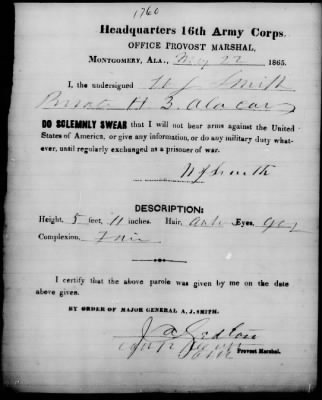 1760
Headquarters 16th Army Corps.
OFFICE PROVOST MARSHAL,
MONTGOMERY, ALA., May 22 1865.
I, the undersigned W J Smith
Private H 3, Ala Cav
DO SOLEMNLY SWEAR that I will not bear arms against the United
States of America, or give any information, or do any military duty what-
ever, until regularly exchanged as a prisoner of war.
W J Smith
DESCRIPTION:
Height, 5 feet, 11 inches. Hair, Eyes,
Complexion, Fair
I certify that the above parole was given by me on the date
above given.
BY ORDER OF MAJOR GENERAL A. J. SMITH.
Provost Marshal.